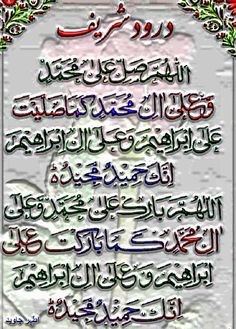 درود شریف
اللهم صل على محمد
وعلى ال محمد كما صليت
على ابراهيم وعلى ال ابراهيم
انك حميد مجيد
اللهم بارك على محمد وعلى
ال محمد كما باركت على
ابراهيم وعلى ال ابراهيم
انك حميد مجيد
اظہر جاوید